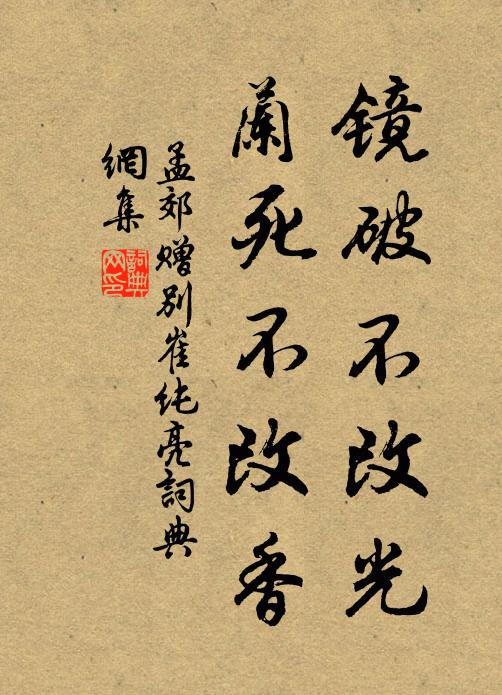 镜破不改光
蘭死不改香
孟郊赠别崔纯亮詞典
網集
詞典
网印